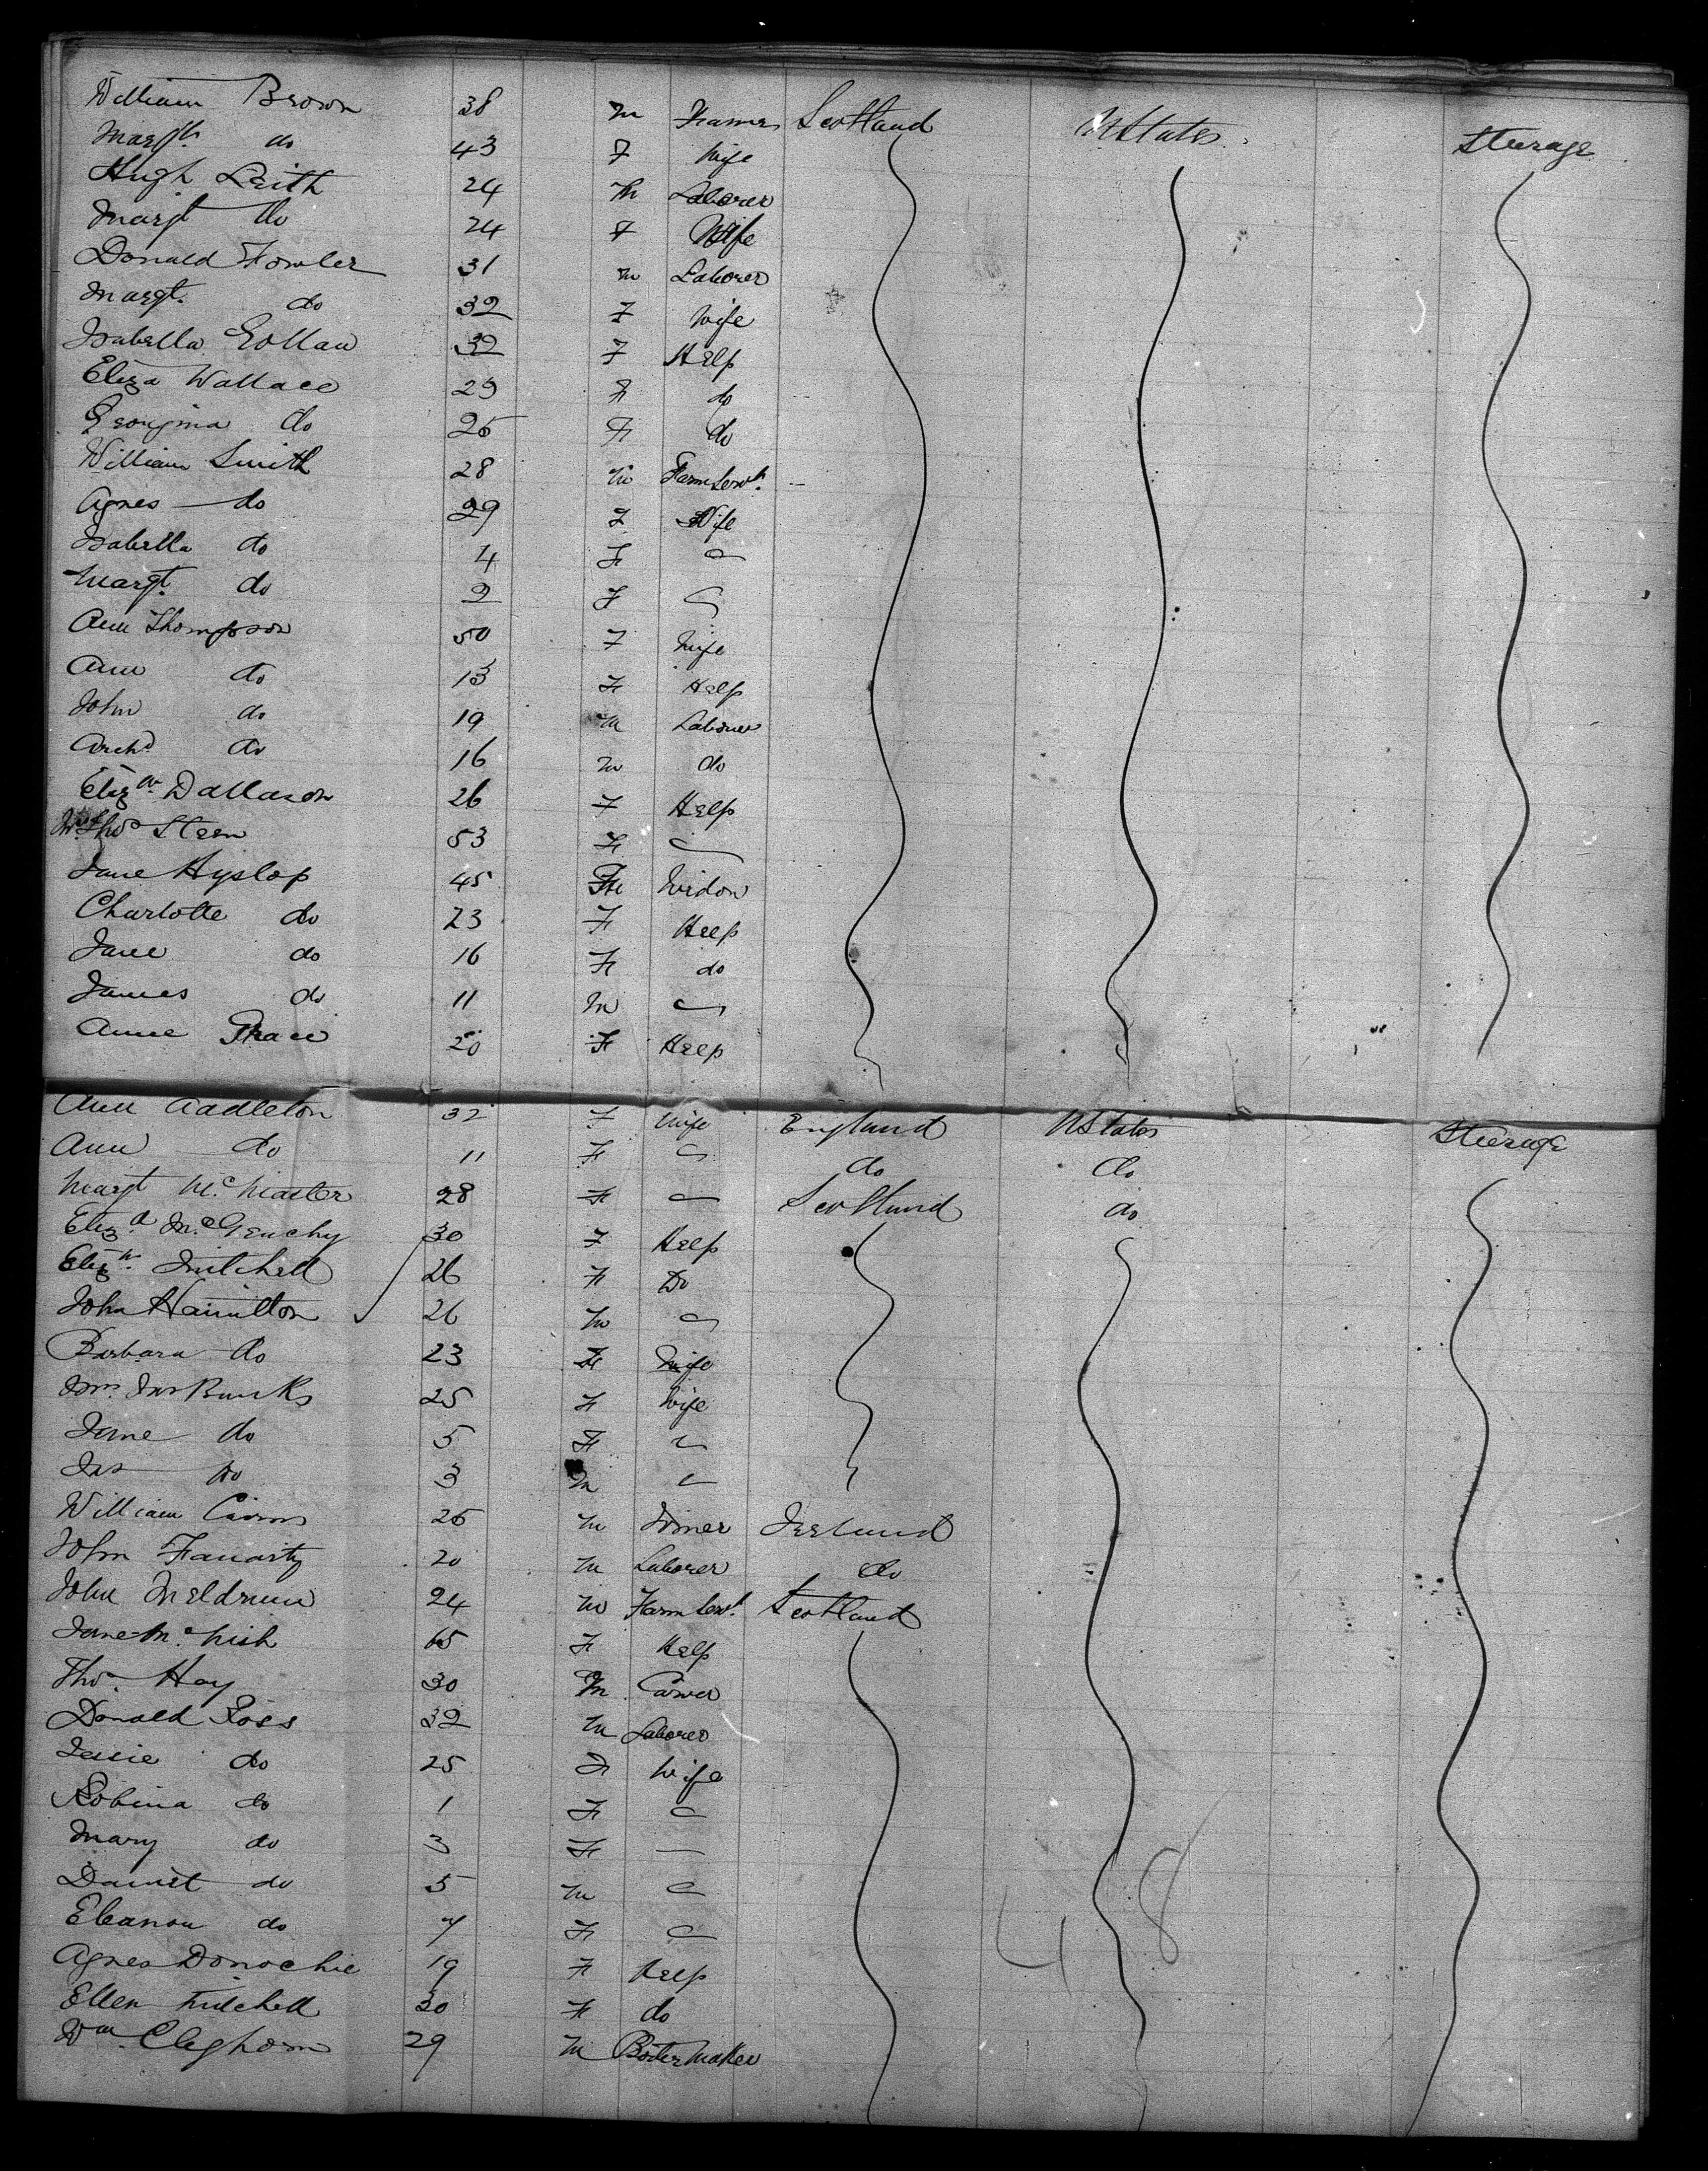 William Brown 38 m Farmer Scotland U States Steerage
Margt. do 43 F Wife
Hugh Leith 24 m Laborer
Margt do 24 F Wife
Donald Fowler 31 m Laborer
Margt. do 32 F Wife
Isabella Gollan 32 F Help
Eliza Wallace 29 F do
Georgina do 25 F do
William Smith 28 m Farm Servt.
Agnes do 29 F Wife
Isabella do 4 F
Margt. do 2 F
Ann Thompson 50 F Wife
Ann do 13 F Help
John do 19 m Laborer
Archd do 16 m do
Elizth Dallason 26 F Help
Mrs Thos Steen 53 F
Jane Hyslop 45 F Widow
Charlotte do 23 F Help
Jane do 16 F do
James do 11 m
Annie Grace 20 F Help
Ann Aadleton 32 F Wife England U States Steerage
Ann do 11 F do do
Margt McMaster 28 F Scotland do
Eliza McGeuchy 30 F Help
Elizth Mitchell 26 F Do
John Hamilton 26 m
Barbara do 23 F Wife
Mrs. Jas Banks 25 F Wife
Jane do 5 F
Jas do 3 m
William Cairns 25 m Joiner Ireland
John Fanarty 20 m Laborer do
John Meldrum 24 m Farm Servt. Scotland
Jane McNish 65 F Help
Thos. Hay 30 m Carver
Donald Ross 32 m Laborer
Jessie do 25 F Wife
Robina do 1 F
Mary do 3 F
Daniel do 5 m
Eleanor do 7 F
Agnes Donochie 19 F Help
Ellen Mitchell 30 F do
Wm. Cleghorn 29 m Boilermaker
48